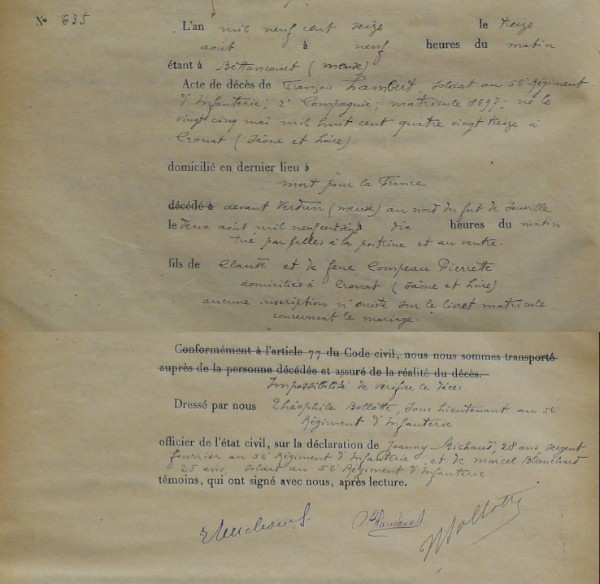 N° 635
L'an mil neuf cent seize le treize
août à neuf heures du matin
étant à Béthancourt (meuse)
Acte de décès de François Lambert soldat au 56 Régiment
d'Infanterie; 2e Compagnie; matricule 8697; né le
vingt cinq mai mil huit cent quatre vingt treize à
Cronat (Saône et Loire).
domicilié en dernier lieu à
mort pour la France
décédé à devant Verdun (meuse) au nord du fort de Souville
le deux août mil neuf cent à dix heures du matin
Tué par balles à la poitrine et au ventre.
fils de Claude et de feue Compeau Pierrette
domiciliés à Cronat (Saône et Loire)
aucune inscription n'existe sur le livret matricule
concernant le mariage.
Conformément à l'article 77 du Code civil, nous nous sommes transporté
auprès de la personne décédée et assuré de la réalité du décès.
Impossibilité de vérifier le décès
Dressé par nous Théophile Bollotte, sous lieutenant au 56
Régiment d'Infanterie
officier de l'état civil, sur la déclaration de Joanny Michaud, 28 ans, sergent
fourrier au 56 Régiment d'Infanterie et de marcel Blanchard
25 ans soldat au 56 Régiment d'Infanterie.
témoins, qui ont signé avec nous, après lecture.